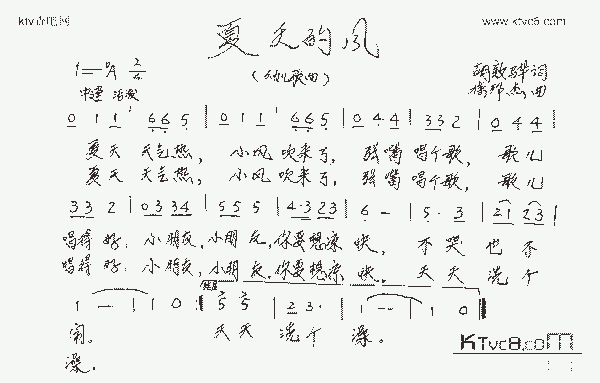 www.ktvc8.com
夏天的风
(幼儿歌曲)
1=ᵇA 2/4
中速 活泼
胡敦骅 词
曲
0 1 1 | 6 6 5 | 0 1 1 | 6 6 5 | 0 4 4 | 3 3 2 | 0 4 4
夏天 天气热, 小风 吹来了, 张嘴 唱个歌, 歌儿
夏天 天气热, 小风 吹来了, 张嘴 唱个歌, 歌儿
3 3 2 | 0 3 3 4 | 5 5 5 | 4·3 2 3 | 6 - | 5· 3 | 2 1 2 3
唱得 好: 小朋友, 小朋 友, 你要想凉 快, 不 哭 也 不
唱得 好: 小朋友, 小朋 友, 你要想凉 快, 天 天 洗 个
1 - | 1 0 :| 5 5 | 2 3· | 1 - | 1 0
闹。 天 天 洗 个 澡。
澡。
KTvc8.com